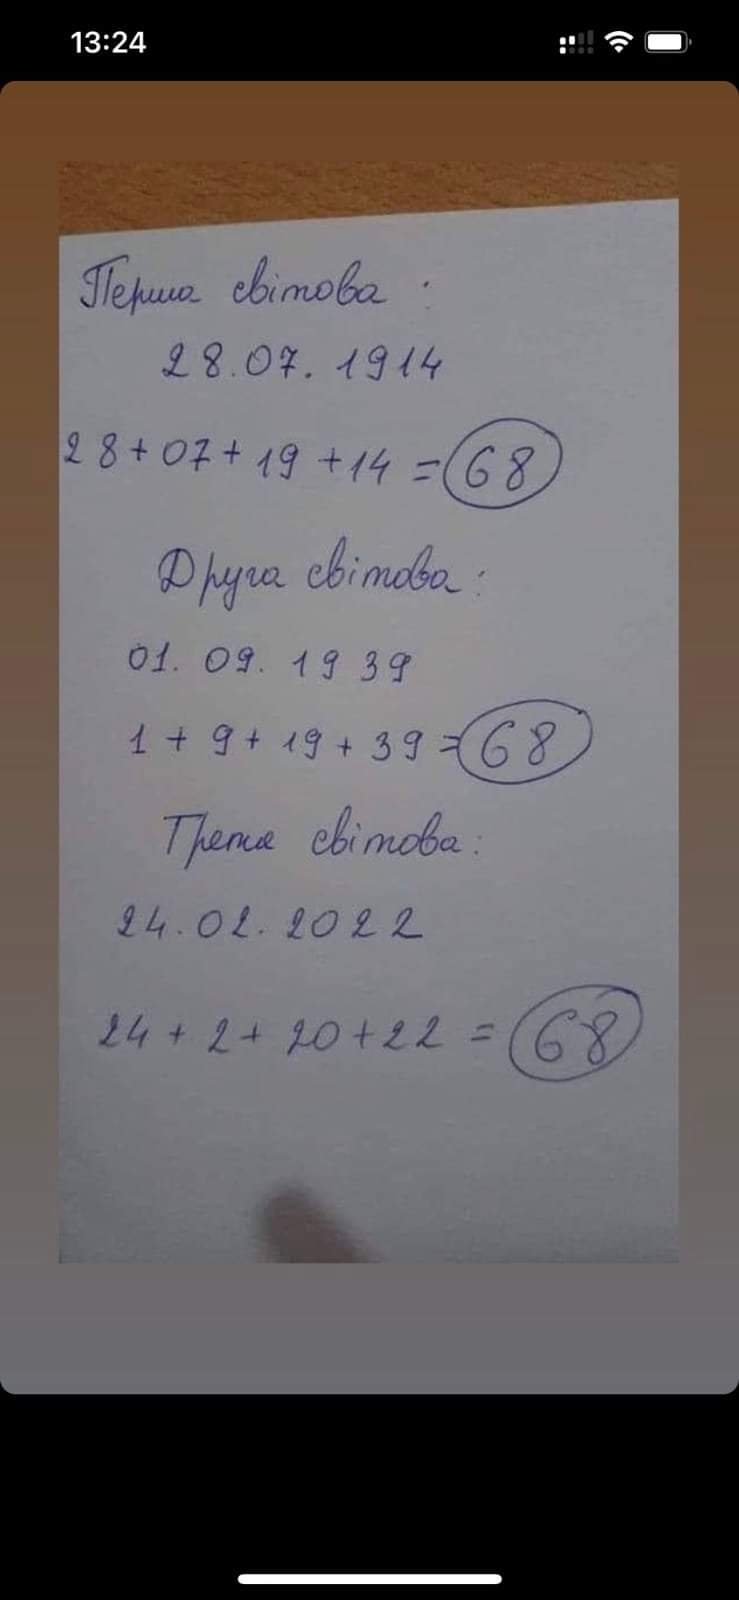 13:24
Перша світова:
28.07.1914
28+07+19+14=68
Друга світова:
01.09.1939
1+9+19+39=68
Третя світова:
24.02.2022
24+2+20+22=68